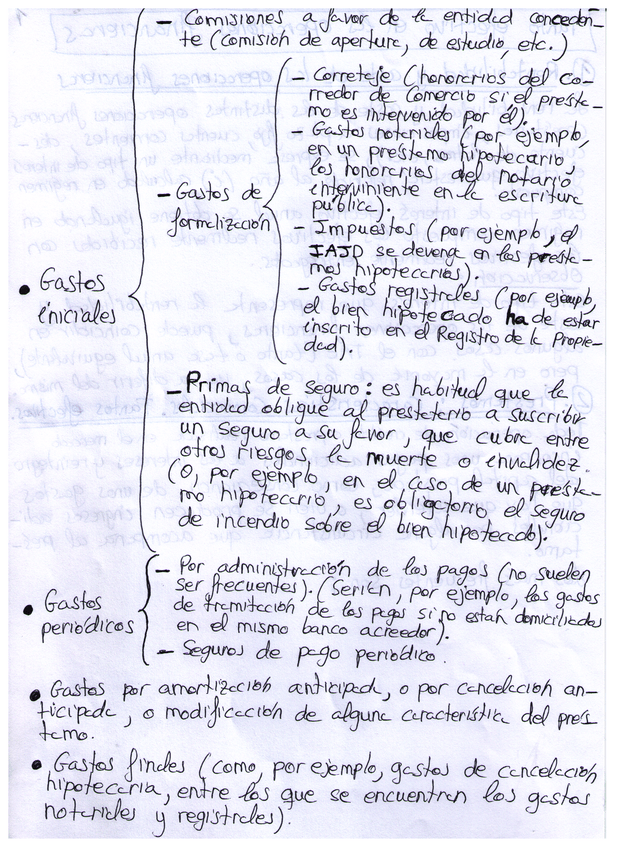 - Comisiones a favor de la entidad conceden-
te (comisión de apertura, de estudio, etc.)
- Gastos de
formalización
- Corretaje (honorarios del co-
rredor de Comercio si el présta-
mo es intervenido por él).
- Gastos notariales (por ejemplo,
en un préstamo hipotecario,
los honorarios del notario
interviniente en la escritura
pública).
- Impuestos (por ejemplo, el
IAJD se devenga en los présta-
mos hipotecarios).
- Gastos registrales (por ejemplo,
el bien hipotecado ha de estar
inscrito en el Registro de la Propie-
dad).
• Gastos
iniciales
- Primas de seguro: es habitual que la
entidad obligue al prestatario a suscribir
un seguro a su favor que cubra entre
otros riesgos, la muerte o invalidez.
(O, por ejemplo en el caso de un présta-
mo hipotecario, es obligatorio el seguro
de incendio sobre el bien hipotecado).
• Gastos
periódicos
- Por administración de los pagos (no suelen
ser frecuentes). (Serían, por ejemplo, los gastos
de tramitación de los pagos si no están domiciliados
en el mismo banco acreedor).
- Seguros de pago periódico.
• Gastos por amortización anticipada, o por cancelación an-
ticipada, o modificación de alguna característica del prés-
tamo.
• Gastos finales (como, por ejemplo, gastos de cancelación
hipotecaria, entre los que se encuentran los gastos
notariales y registrales).